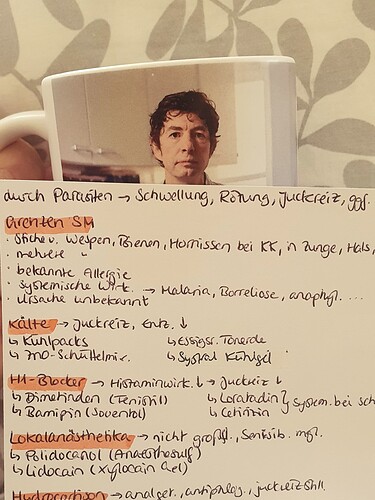 durch Parasiten → Schwellung, Rötung, Juckreiz, ggf.
Grenten SM
· Stiche v. Wespen, Bienen, Hornissen bei KK, in Zunge, Hals,
· mehrere "
· bekannte Allergie
· systemische Wirk. → Malaria, Borreliose, anaphyl. ...
· Ursache unbekannt
Kälte → Juckreiz, Entz. ↓
↳ Kühlpacks ↳ Essigs. Tonerde
↳ ZnO-Schüttelmix. ↳ Systral Kühlgel
H1-Blocker → Histaminwirk. ↓ → Juckreiz ↓
↳ Dimetinden (Fenistil) ↳ Loratadin } system. bei sch
↳ Bamipin (Soventol) ↳ Cetirizin
Lokalanästhetika → nicht großfl., Sensib. mgl.
↳ Polidocanol (Anaesthesulf)
↳ Lidocain (Xylocain Gel)
Hydrocortison → analger., antiphlog., juckreizstill.